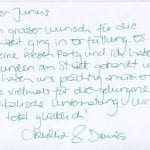 er Junus
grosser wunsch für die
zeit ging in erfüllung. Es
eine Riesen Party und ich habe
unden am Stück getanzt u
haben uns prächtig amüsier
e vielmals für die gelungene
ikalische Unterhaltung! Wir
total glücklich!
Claudia & Dennis